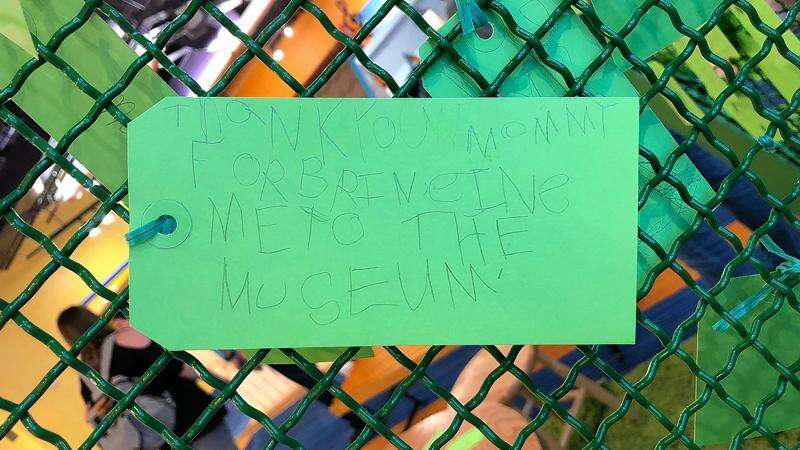 THANK YOU MOMMY
FOR BRINGINE
ME TO THE
MUSEUM